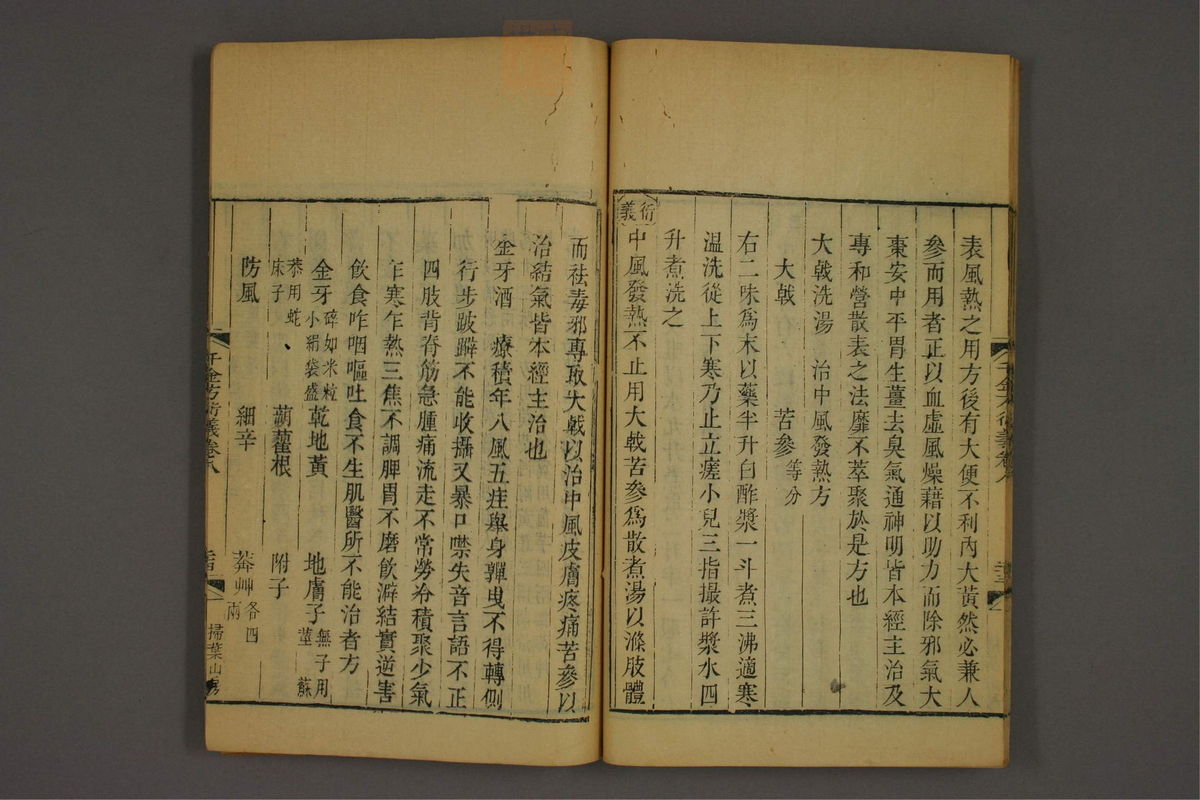 表風熱之用方後有大便不利內大黃然必兼人
參而用者正以血虛風燥藉以助力而除邪氣大
棗安中平胃生薑去臭氣通神明皆本經主治及
專和營散表之法靡不萃聚於是方也
大戟洗湯　治中風發熱方
大戟　苦參等分
右二味為末以藥半升白酢漿一斗煮三沸適寒
溫洗從上下寒乃止立瘥小兒三指撮許漿水四
升煮洗之
衍義
中風發熱不止用大戟苦參為散煮湯以滌肢體
而祛毒邪專取大戟以治中風皮膚疼痛苦參以
治結氣皆本經主治也
金牙酒　療積年八風五疰舉身嚲曳不得轉側
行步跛躃不能收攝又暴口噤失音言語不正
四肢背脊筋急腫痛流走不常勞冷積聚少氣
乍寒乍熱三焦不調脾胃不磨飲澼結實逆害
飲食咋咽嘔吐食不生肌醫所不能治者方
金牙碎如米粒小絹袋盛　乾地黃　地膚子無子用莖蘇
恭用蛇床子　蒴藋根　附子
防風　細辛　莽艸各四兩
千金方衍義卷八
掃葉山房